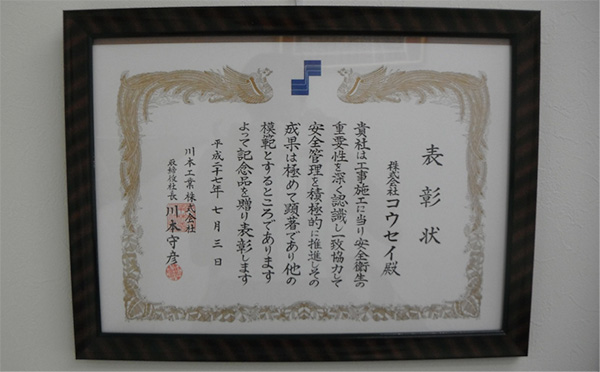 表彰状
株式会社コウセイ殿
貴社は工事施工に当り安全衛生の
重要性を深く認識し一致協力して
安全管理を積極的に推進しその
成果は極めて顕著であり他の
模範とするところであります
よって記念品を贈り表彰します
平成二十七年七月三日
川本工業株式会社
取締役社長 川本守彦